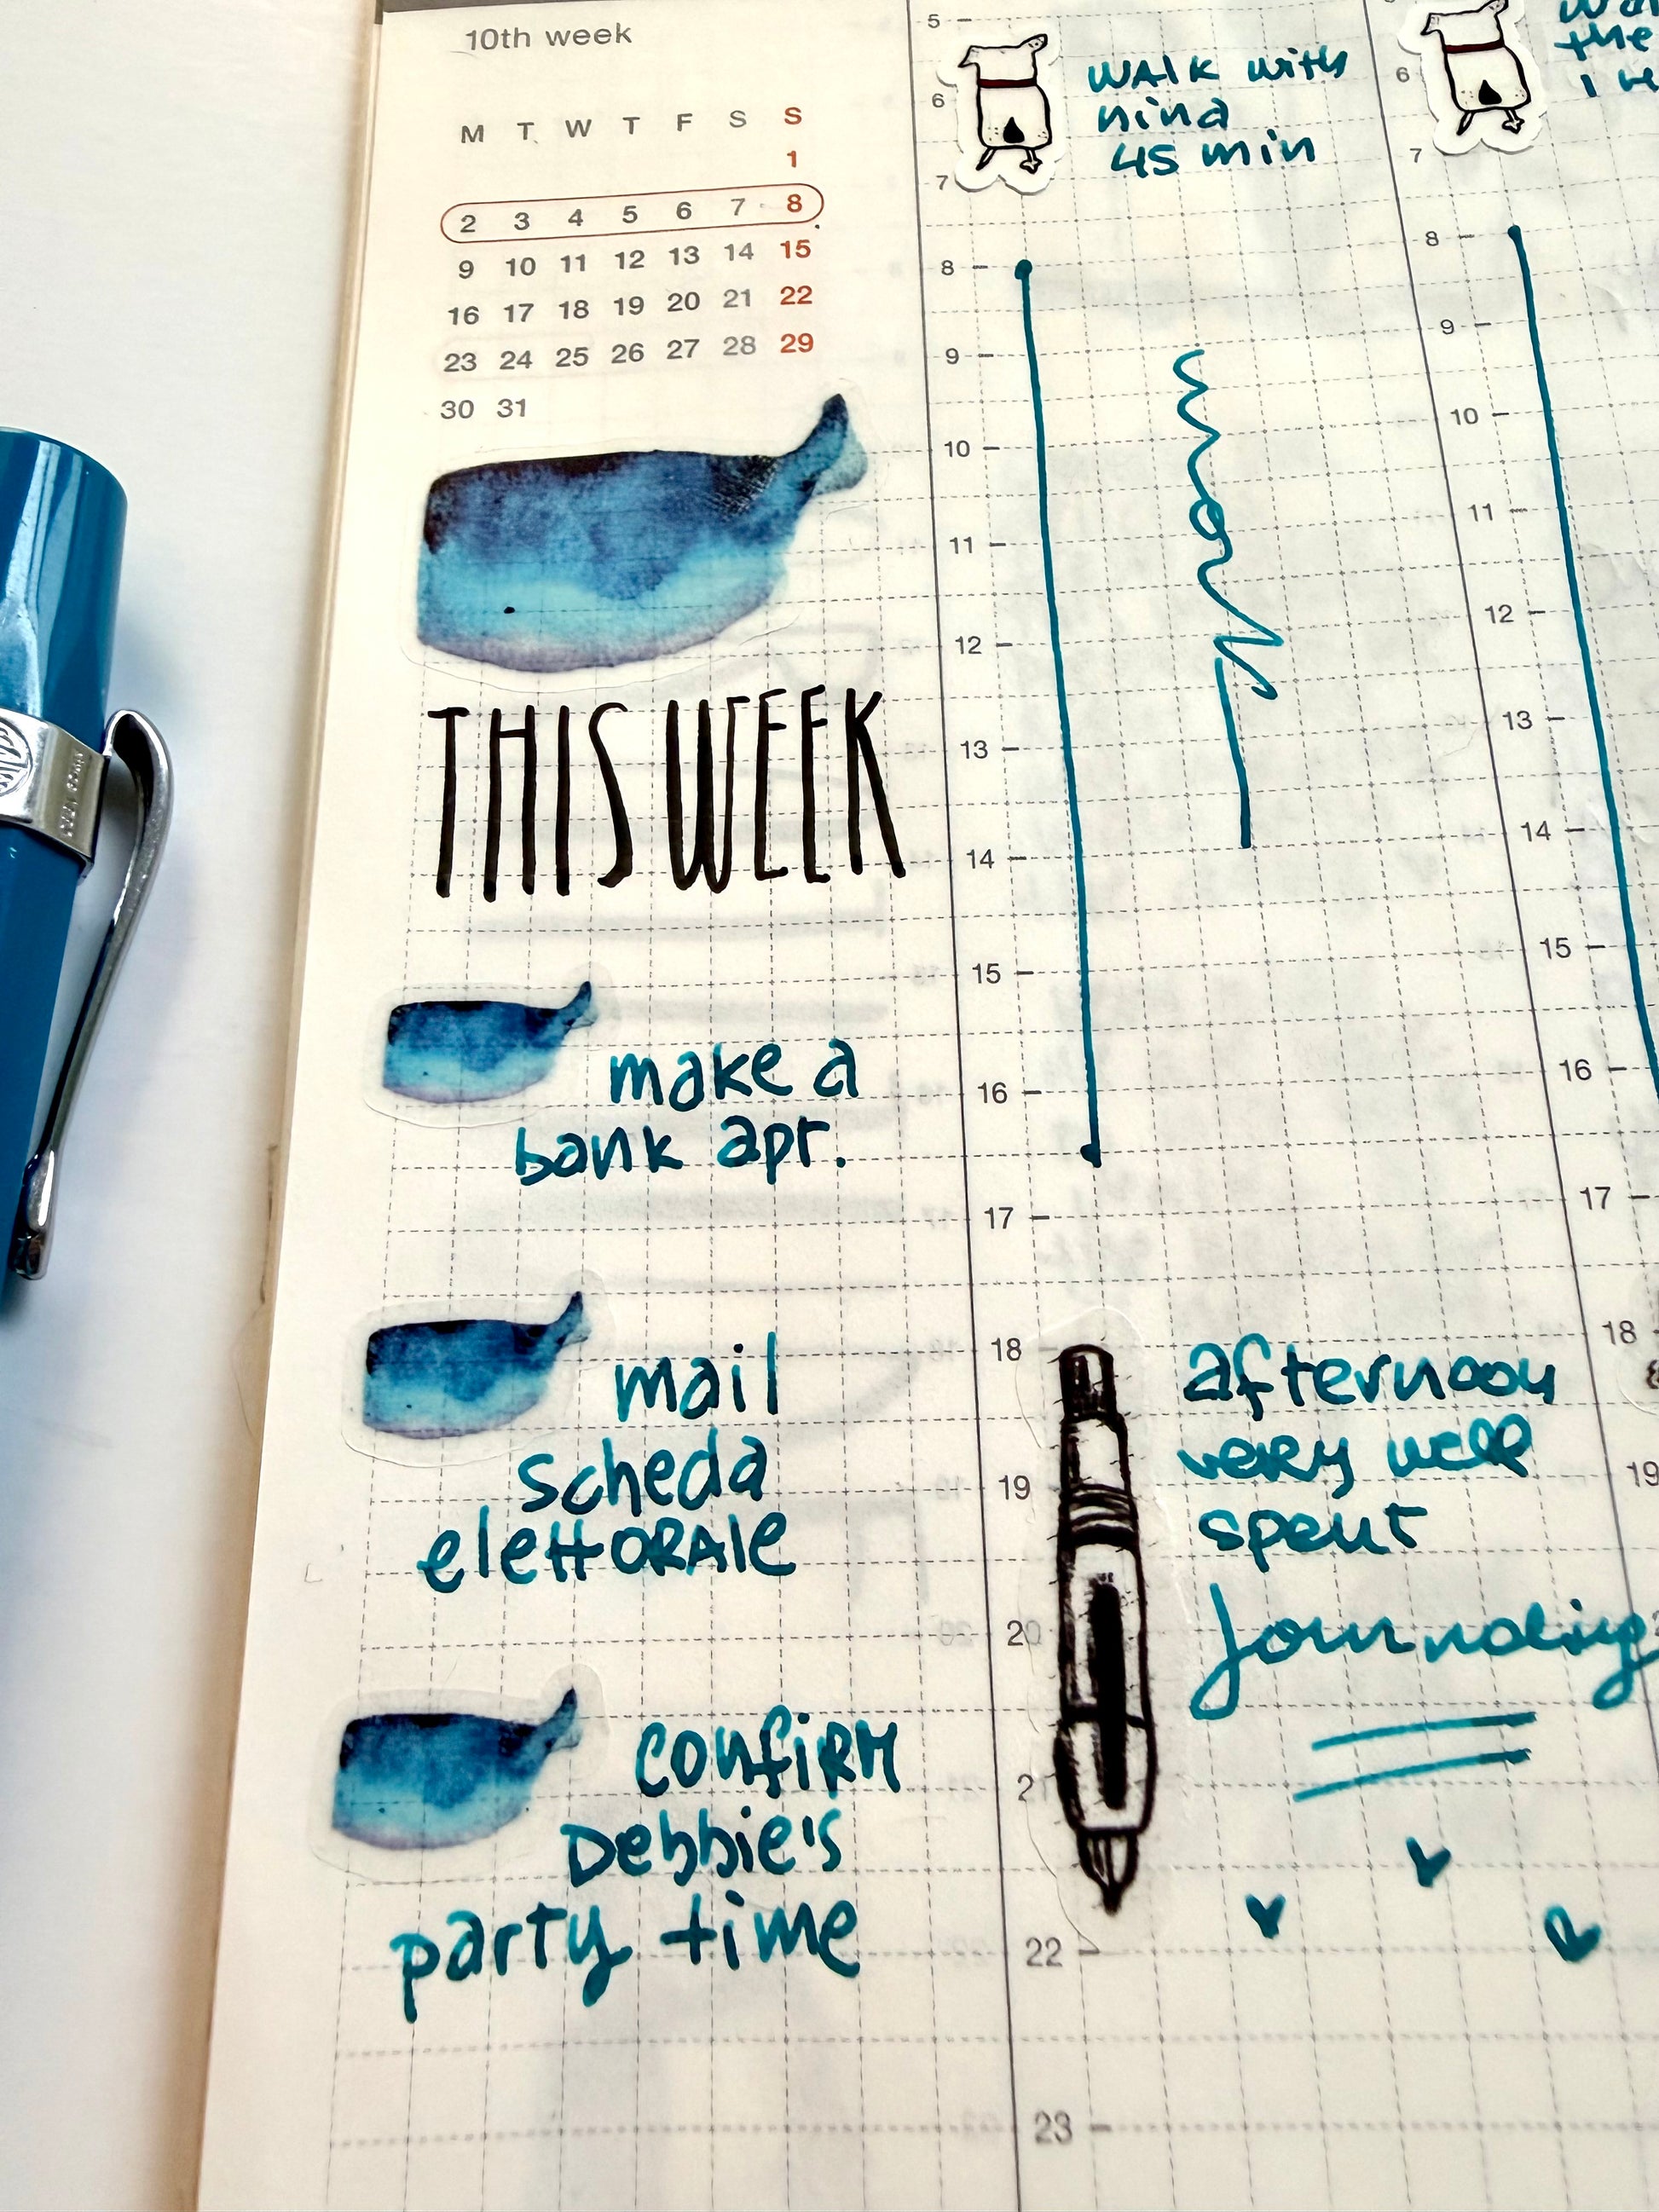 10th week
M T W T F S S
1
2 3 4 5 6 7 8
9 10 11 12 13 14 15
16 17 18 19 20 21 22
23 24 25 26 27 28 29
30 31
THIS WEEK
make a
bank apr.
mail
scheda
elettORAle
confiRM
Debbie's
party time
5
6
7
8
9
10
11
12
13
14
15
16
17
18
19
20
21
22
23
WAlk with
nina
45 min
work
afternoon
very well
spent
Journaling
6
7
8
9
10
11
12
13
14
15
16
17
18
19
the